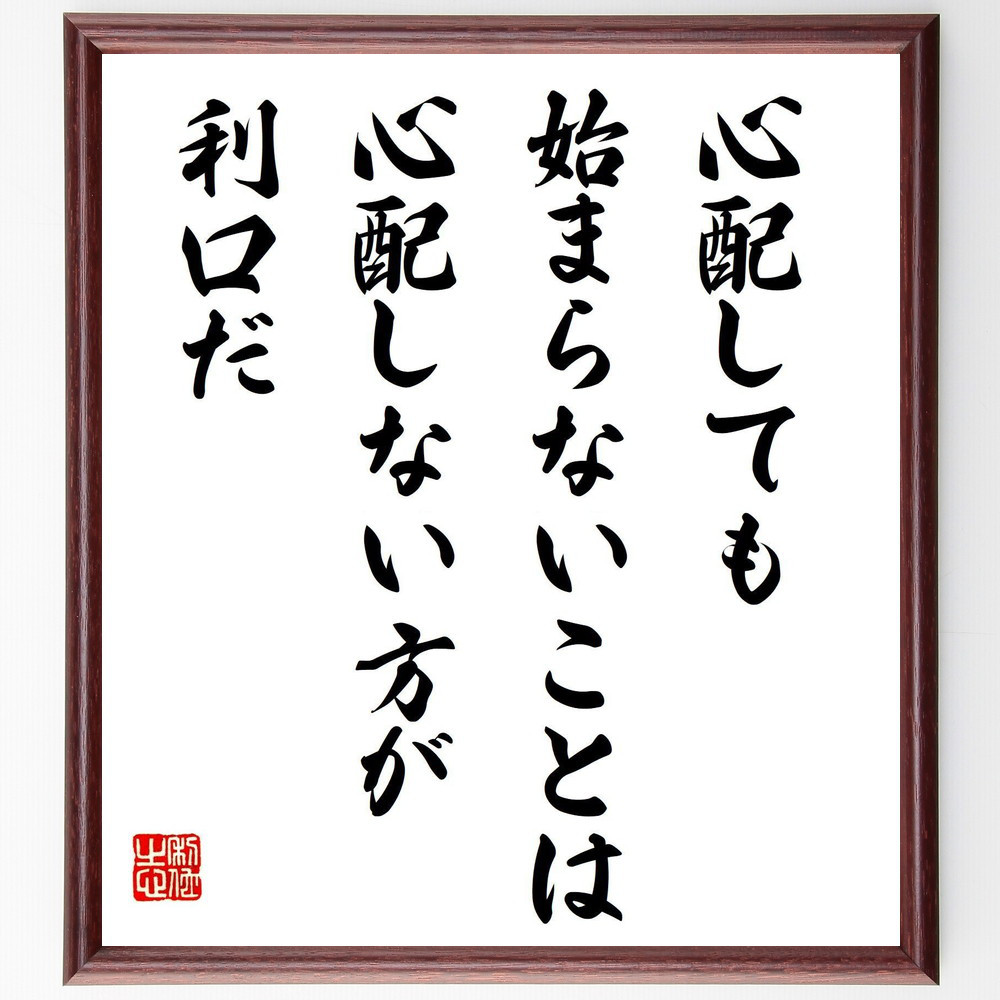 心配しても
始まらないことは
心配しない方が
利口だ